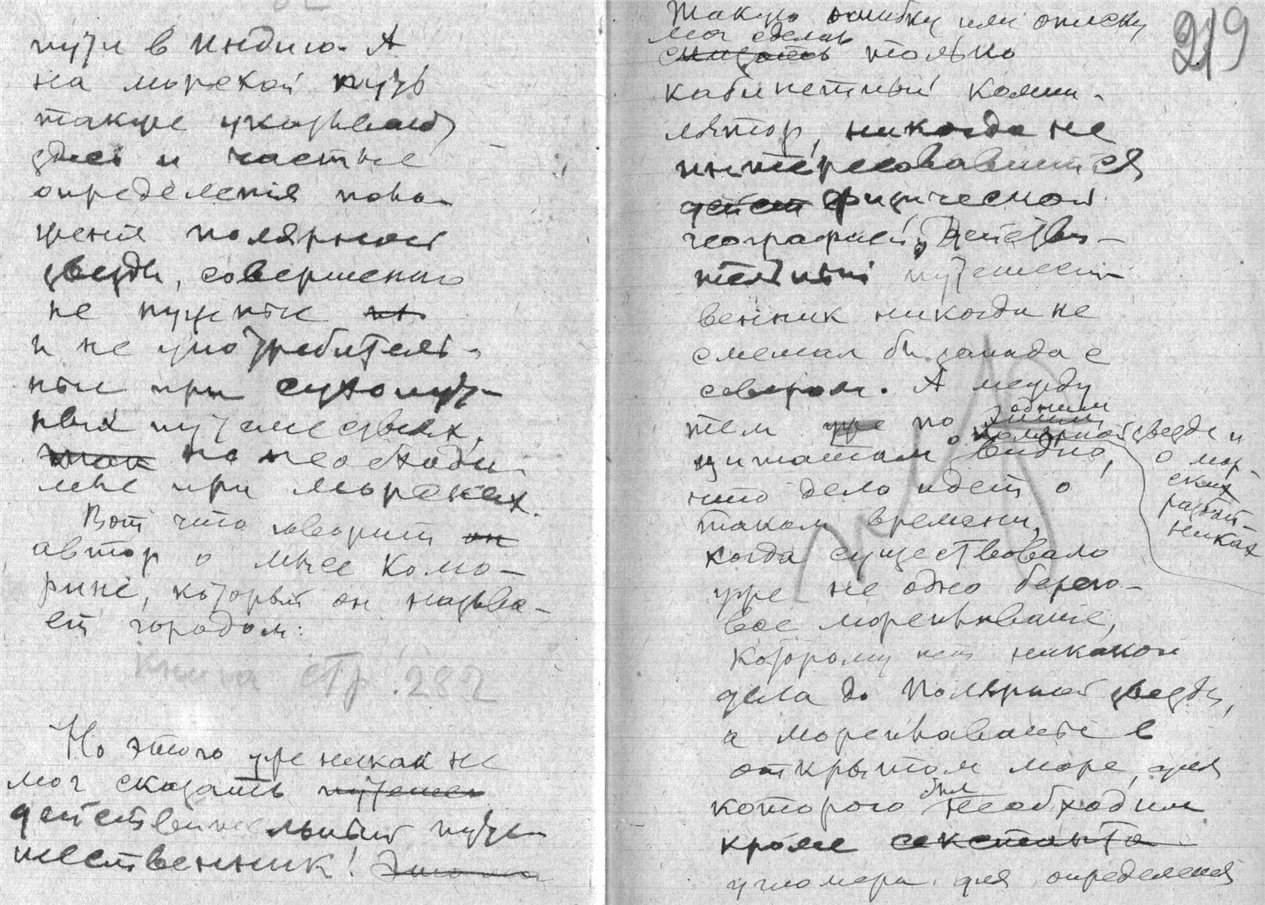 пути в Индию. А
на морской путь
также указывают
здесь и частые
определенія поло-
женія полярной
звезды, совершенно
не нужные
и не употребитель-
ные при сухопут-
ных путешествіях,
но необходи-
мые при морских.
Вот что говорит он
автор о мысе Комо-
рине, который он называ-
ет городом:
Книга стр. 282
Но этого уже никак не
мог сказать путешес
действительный путе-
шественник! Это
219
Такую ошибку или описку
мог сделать
только
кабинетный компи-
лятор, никогда не
интересовавшийся
физической
географией. Действи-
тельный путешест-
венник никогда не
смешал бы запада с
севером. А между
тем уже по одним
цитатам о полярной звезде и
о мор-
ских
работ-
никах
видно,
что дело идет о
таком времени,
когда существовало
уже не одно берего-
вое мореплаваніе,
которому нет никакого
дела до Полярной звезды,
а мореплаваніе в
открытом море, для
которого был необходим
кроме секстанта
угломера для определенія